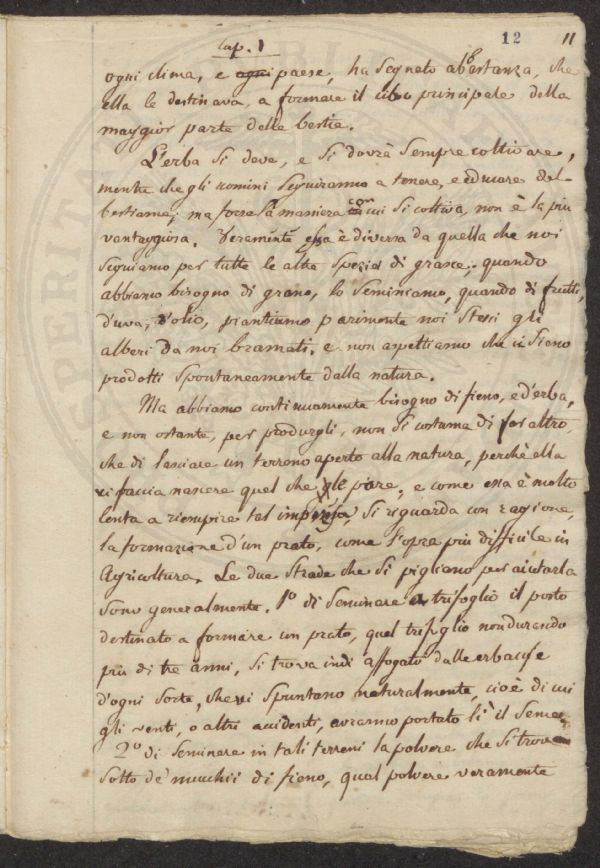 12 11
Cap. 1
ogni clima, e ogni paese, ha segnato abbastanza, che
ella le destinava, a formare il cibo principale della
maggior parte delle bestie.
L'erba si deve, e si dovrà sempre coltivare,
mentre che gli uomini seguiranno a tenere, e educare del
bestiame; ma forse la maniera con cui si coltiva, non è la più
vantaggiosa. Veramente essa è diversa da quella che noi
seguiamo per tutte le altre spezie di grasce; quando
abbiamo bisogno di grano, lo seminiamo, quando di frutti,
d'uva, d'olio, piantiamo parimente noi stessi gli
alberi da noi bramati, e non aspettiamo che ci sieno
prodotti spontaneamente dalla natura.
Ma abbiamo continuamente bisogno di fieno, e d'erba,
e non ostante, per produrgli, non si costuma di far altro,
che di lasciare un terreno aperto alla natura, perchè ella
vi faccia nascere quel che gli piace, e come essa è molto
lenta a riempire tal impresa, si riguarda con ragione,
la formazione d'un prato, come l'opra più difficile in
Agricoltura. Le due strade che si pigliano per aiutarla
sono generalmente. 1º di seminare a trifoglio il posto
destinato a formare un prato, quel trifoglio non durando
più di tre anni, si trova indi affogato dalle erbacce
d'ogni sorte, che vi spuntano naturalmente, cioè di cui
gli venti, o altri accidenti, avranno portato lì il seme.
2º di seminare in tali terreni la polvere che si trova
sotto de' mucchii di fieno, qual polvere veramente